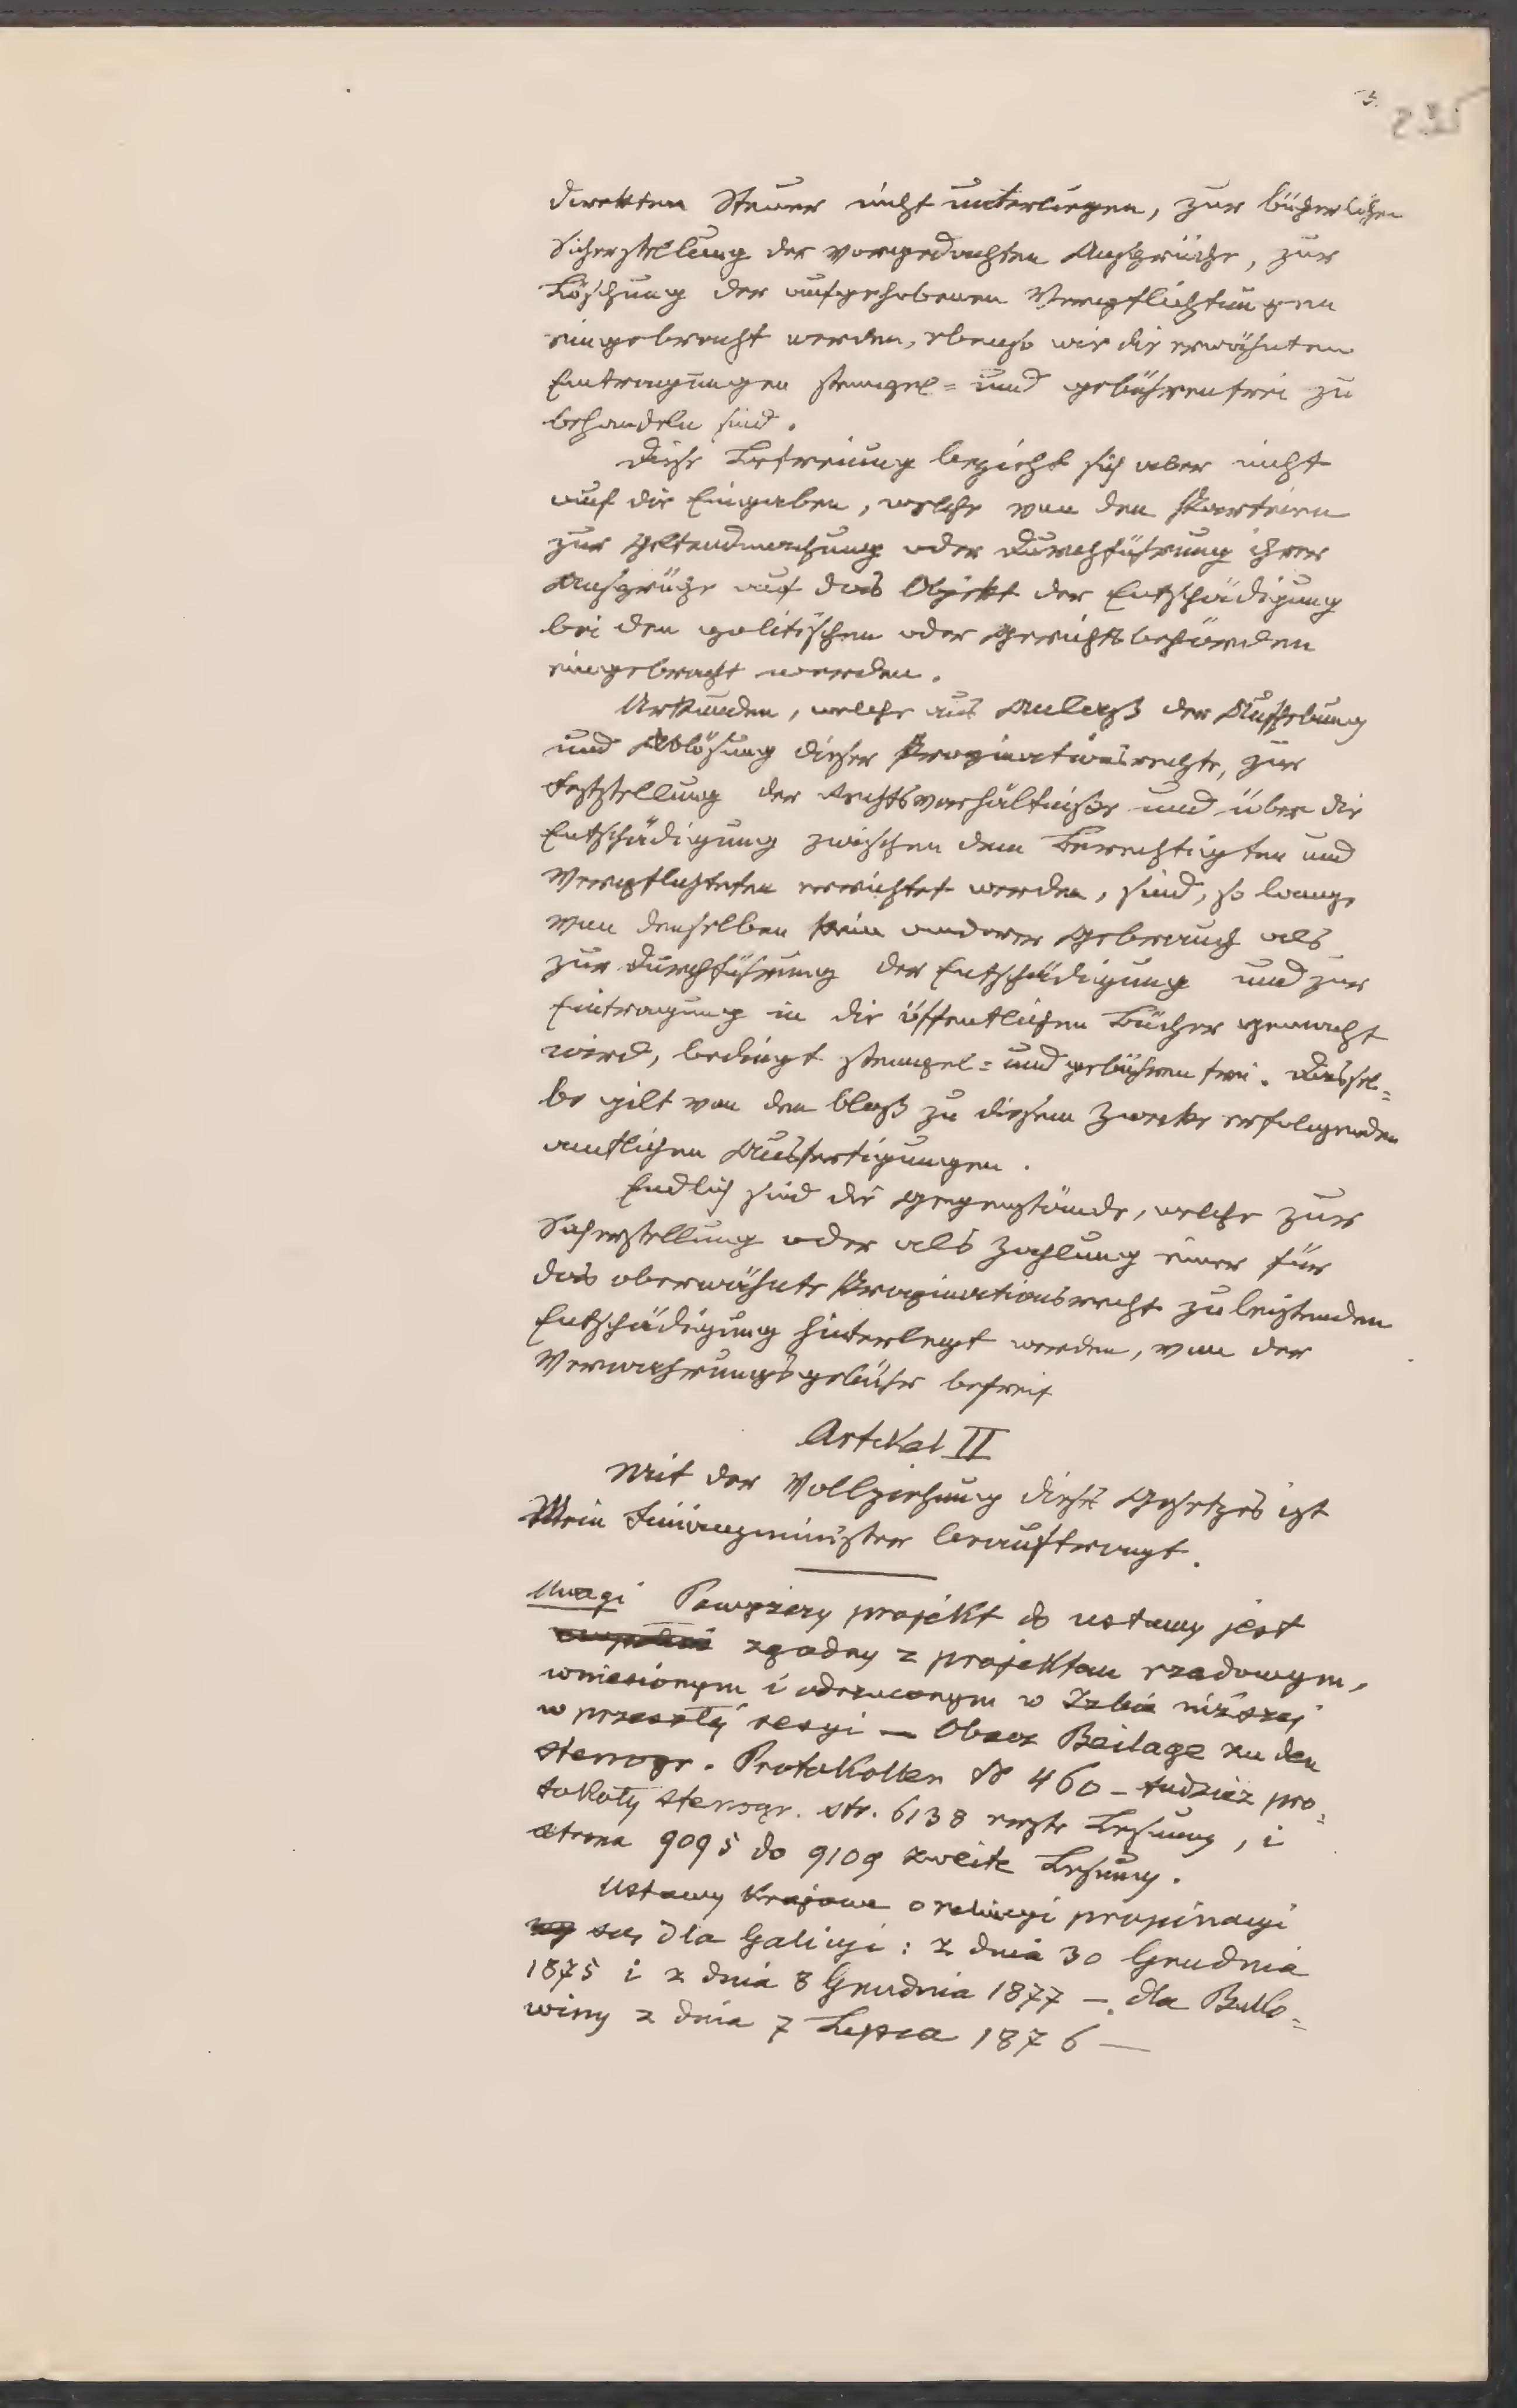 3.
direkten Steuer nicht unterliegen, zur bücherlichen
Sicherstellung der vorgedachten Ansprüche, zur
Löschung der aufgehobenen Verpflichtungen
eingebracht werden, ebenso wie die erwähnten
Eintragungen stempel= und gebührenfrei zu
behandeln sind.
Diese Befreiung bezieht sich aber nicht
auf die Eingaben, welche von den Parteien
zur Geltendmachung oder Durchführung ihrer
Ansprüche auf das Objekt der Entschädigung
bei den politischen oder Gerichtsbehörden
eingebracht werden.
Urkunden, welche aus Anlaß der Aufhebung
und Ablösung dieser Propinationsrechte, zur
Feststellung der Rechtsverhältnisse und über die
Entschädigung zwischen dem Berechtigten und
Verpflichteten errichtet werden, sind, so lange
von denselben kein anderer Gebrauch als
zur Durchführung der Entschädigung und zur
Eintragung in die öffentlichen Bücher gemacht
wird, bedingt stempel= und gebührenfrei. Dassel=
be gilt von den bloß zu diesem Zwecke erfolgenden
amtlichen Ausfertigungen.
Endlich sind die Gegenstände, welche zur
Sicherstellung oder als Zahlung einer für
das oberwähnte Propinationsrecht zu leistenden
Entschädigung hinterlegt werden, von der
Verwahrungsgebühr befreit
Artikel II
Mit der Vollziehung dieses Gesetzes ist
Mein Finanzminister beauftragt.
Uwagi Powyższy projekt do ustawy jest
zgodny z projektem rządowym,
wniesionym i odrzuconym w Izbie niższej
w przeszłej sesyi — Obacz Beilage zu den
stenogr. Protokollen № 460 – tudzież pro=
tokoły stenogr. str. 6138 erste Lesung, i
strona 9095 do 9109 zweite Lesung.
Ustawy krajowe o propinacyi
są dla Galicyi: z dnia 30 Grudnia
1875 i z dnia 8 Grudnia 1877 – dla Buko=
winy z dnia 7 Lipca 1876 —